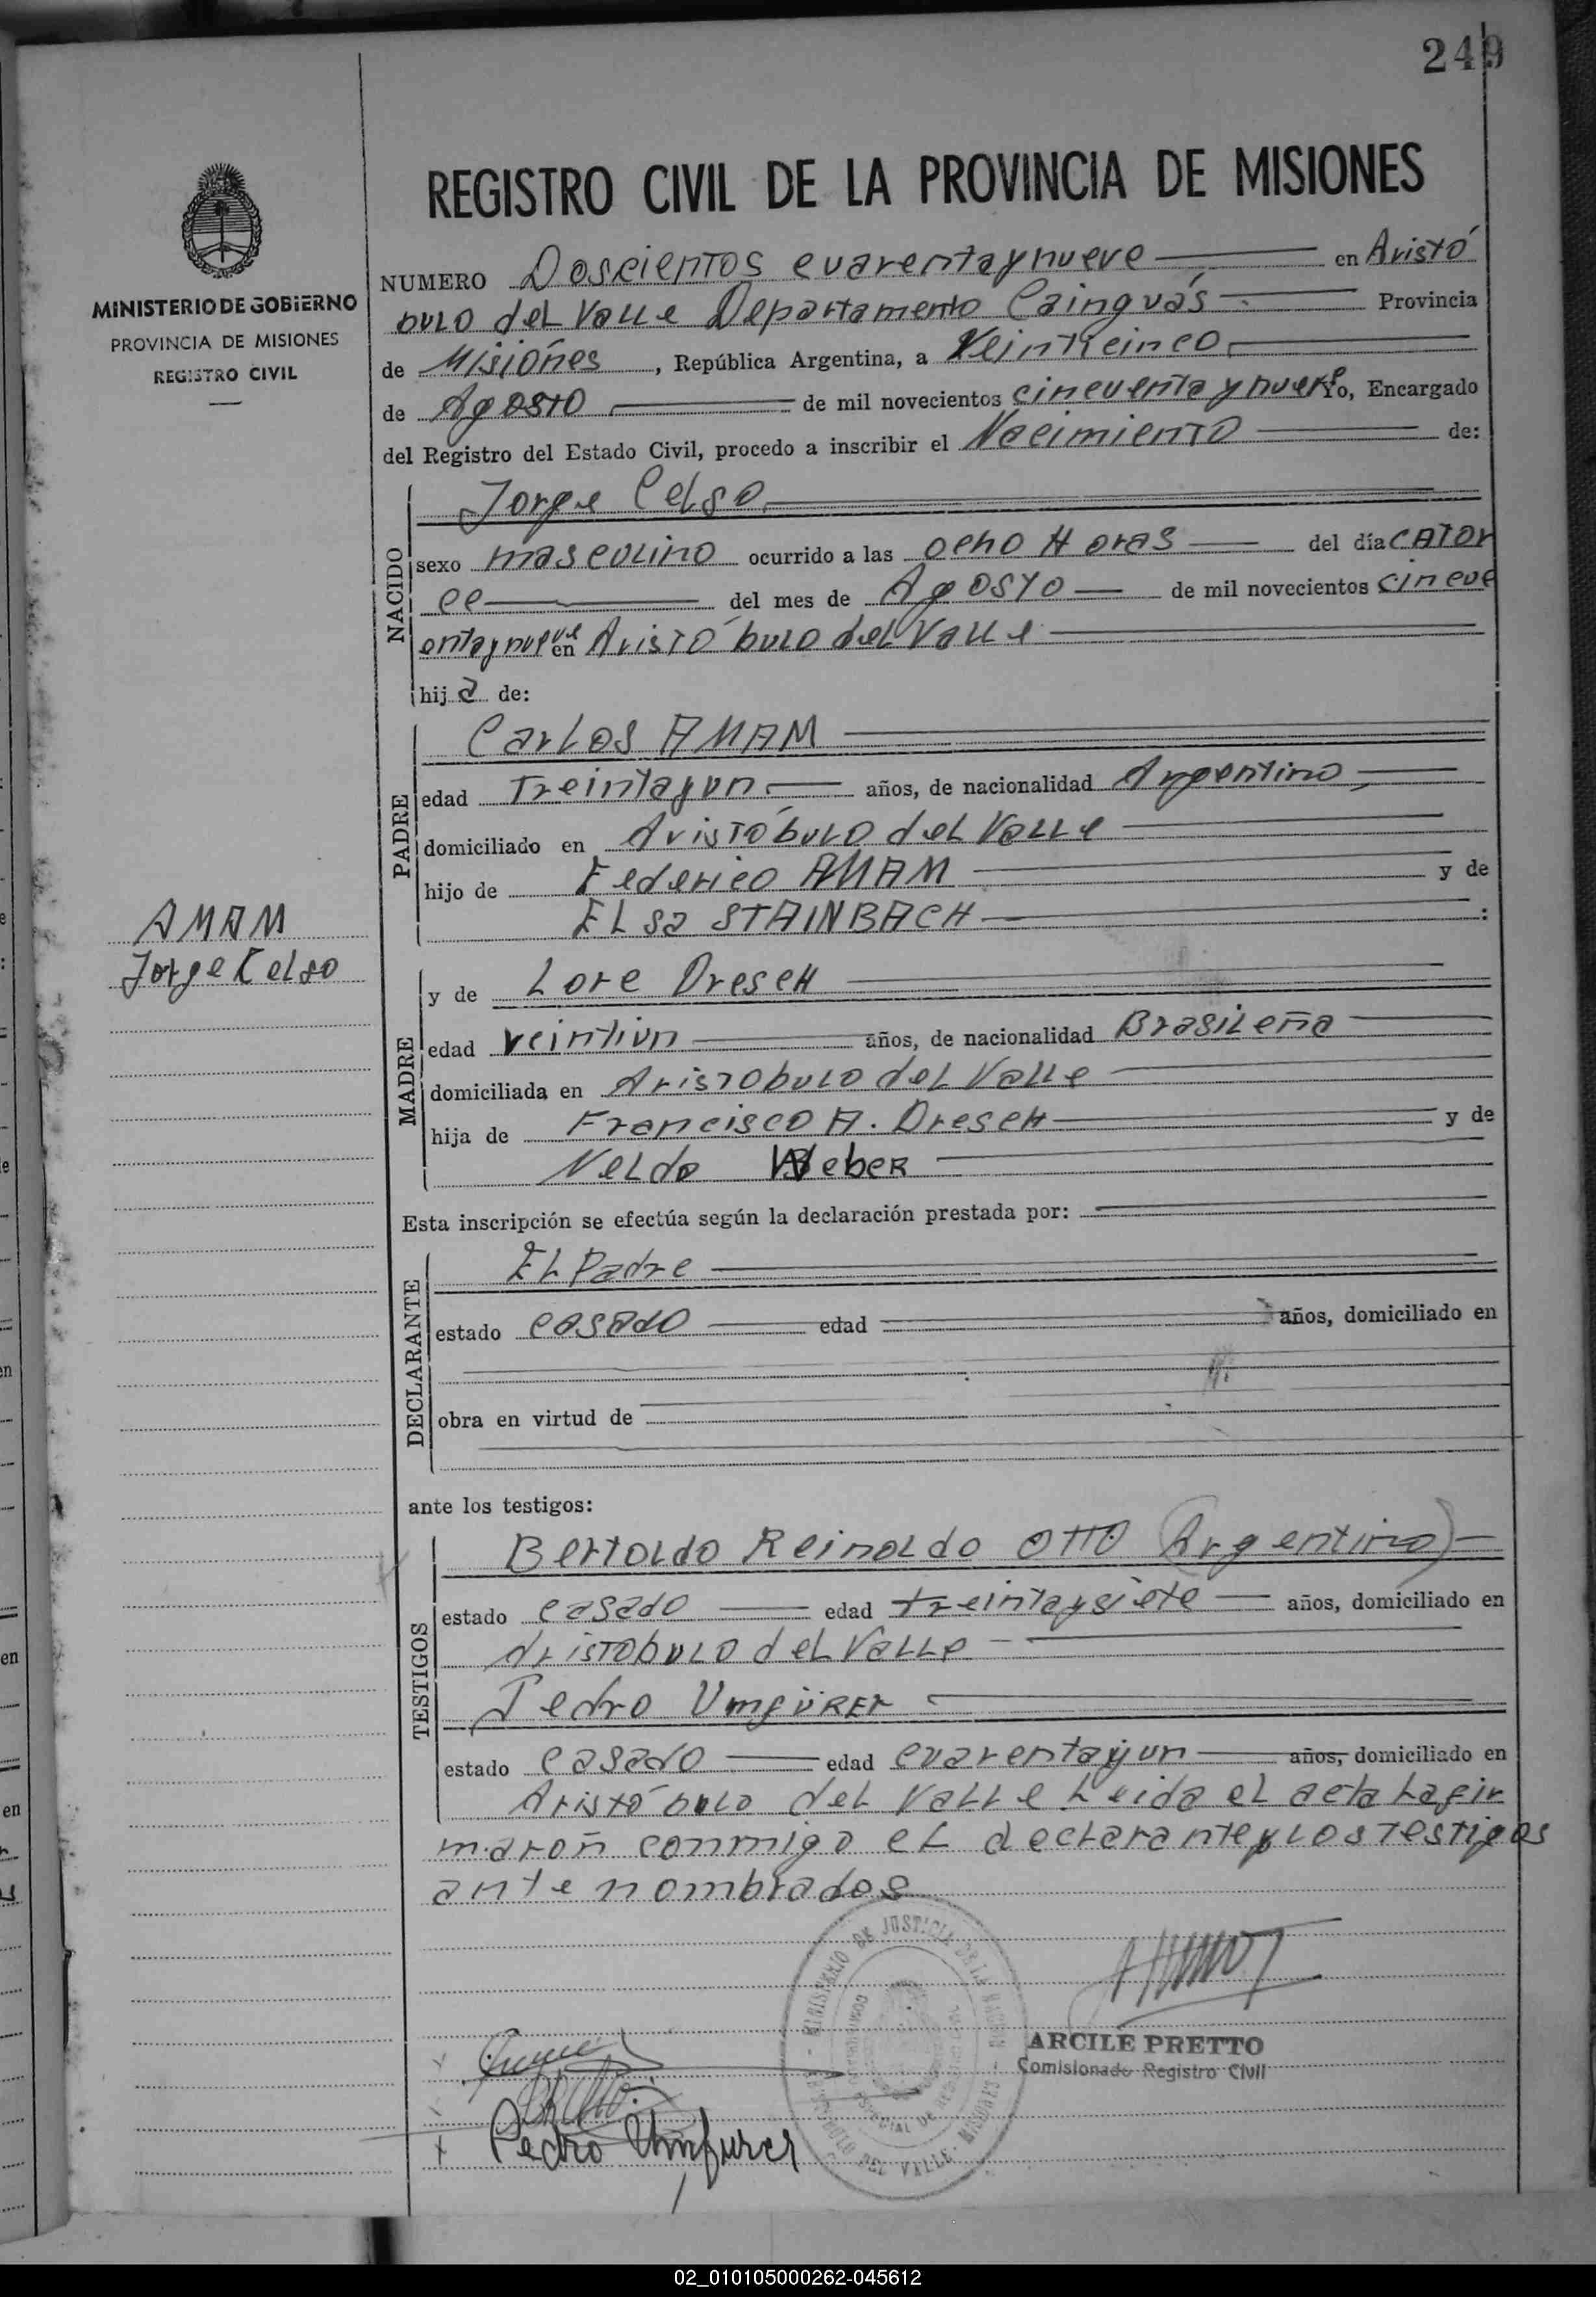 249
REGISTRO CIVIL DE LA PROVINCIA DE MISIONES
MINISTERIO DE GOBIERNO
PROVINCIA DE MISIONES
REGISTRO CIVIL
NUMERO Doscientos cuarentaynueve en Aristó
bulo del Valle Departamento Cainguás Provincia
de Misiónes, República Argentina, a Veinticinco
de Agosto de mil novecientos cincuenta y nueve Yo, Encargado
del Registro del Estado Civil, procedo a inscribir el Nacimiento de:
NACIDO
Jorge Celso
sexo masculino ocurrido a las ocho Horas del día CATOR
ce del mes de Agosto de mil novecientos cincue
ntaynueve en Aristóbulo del Valle
hija de:
PADRE
Carlos AMAM
edad Treintayun años, de nacionalidad Argentino,
domiciliado en Aristóbulo del Valle
hijo de Federico AMAM y de
ELsa STAINBACH :
AMAM
Jorge Celso
MADRE
y de Lore DrescH
edad veintiun años, de nacionalidad Brasileña
domiciliada en Aristobulo del Valle
hija de Francisco A. DrescH y de
Nelda Weber
Esta inscripción se efectúa según la declaración prestada por:
DECLARANTE
El Padre
estado casado edad años, domiciliado en
obra en virtud de
ante los testigos:
TESTIGOS
Bertoldo Reinoldo OTTO (Argentino)
estado casado edad treintaysiete años, domiciliado en
Aristobulo del Valle
Pedro Umfürer
estado casado edad cuarentayun años, domiciliado en
Aristóbulo del Valle Leida el acta la fir
maron conmigo el declarante y los testigos
ante nombrados
MINISTERIO DE JUSTICIA DE LA NACION
ARISTOBULO DEL VALLE - MISIONES
ARCILE PRETTO
Comisionado Registro Civil
Pedro Umfurer
02_010105000262-045612